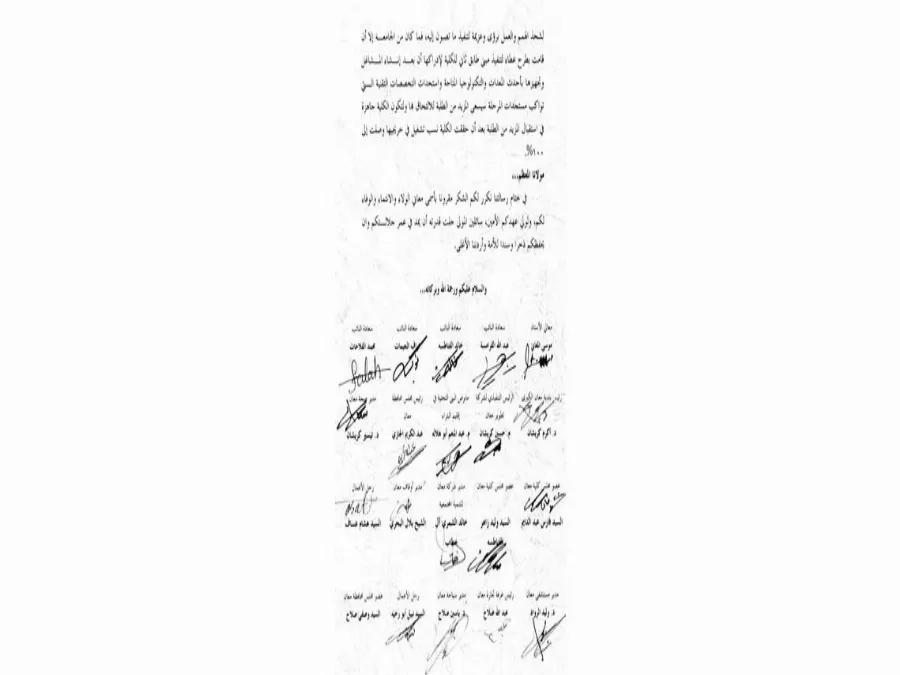 لشحذ الهمم والعمل برؤى وعزيمة لتنفيذ ما تصبون إليه، فما كان من الجامعة إلا أن
قامت بطرح عطاء لتنفيذ مبنى طابق ثاني للكلية لإدراكها أن بعد إنشاء المشاغل
وتجهيزها بأحدث المعدات والتكنولوجيا المتاحة واستحداث التخصصات التقنية التي
تواكب مستجدات المرحلة سيسعى المزيد من الطلبة للالتحاق بها ولتكون الكلية جاهزة
في استقبال المزيد من الطلبة بعد أن حققت الكلية نسب تشغيل في خريجيها وصلت إلى
١٠٠%.
مولانا المعظم...
في ختام رسالتنا نكرر لكم الشكر مقرونا بأسمى معاني الولاء والانتماء والوفاء
لكم، ولولي عهدكم الأمين، سائلين المولى جلت قدرته أن يمد في عمر جلالتكم وان
يحفظكم ذخرا وسندا للأمة وأردننا الأغلى.
والسلام عليكم ورحمة الله وبركاته...
معالي الأستاذ سعادة النائب سعادة النائب سعادة النائب سعادة النائب
موسى المعاني عبد الله القرامسة خالد الفناطسة محمد الفلاحات
رئيس بلدية معان الكبرى الرئيس التنفيذي لشركة مفوض البنى التحتية في رئيس مجلس محافظة مدير صحة معان
تطوير معان إقليم البتراء معان
د. أكرم كريشان م. حسين كريشان م. عبد المنعم أبو هلاله عبد الكريم الجازي د. تيسير كريشان
عضو مجلس كلية معان عضو مجلس كلية معان مدير شركة معان مدير أوقاف معان رجل الأعمال
لتنمية المجتمعية
السيد فارس عبد الدايم السيد وليد زاهر خالد الشمري آل الشيخ بلال البحري السيد هشام عساف
خطاب
مدير مستشفى معان رئيس غرفة تجارة معان مدير سياحة معان رجل الأعمال عضو مجلس محافظة معان
د. وليد الرواد عبد الله صلاح د. ياسين صلاح السيد نبيل أبو رخية السيد وصفي صلاح